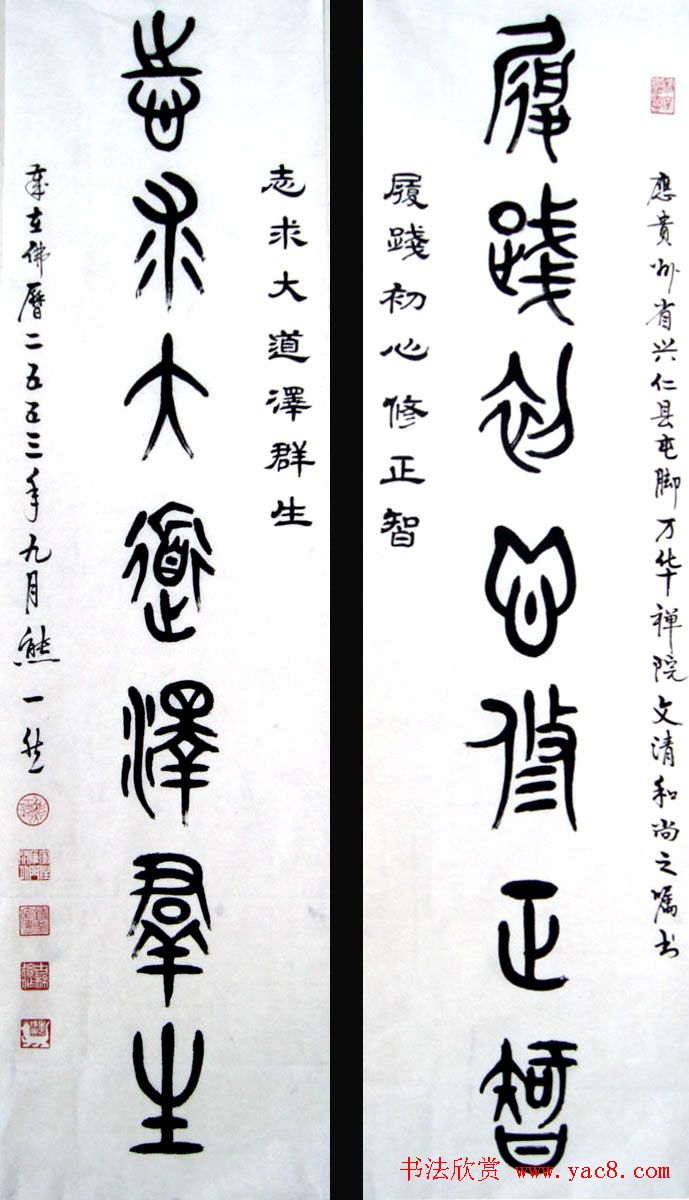 應貴州省兴仁县屯脚万华禅院文清和尚之嘱书
履踐初心修正智
履踐初心修正智
志求大道澤群生
志求大道澤羣生
歲在佛曆二五五三年九月熊一然
书法欣赏 www.yac8.com